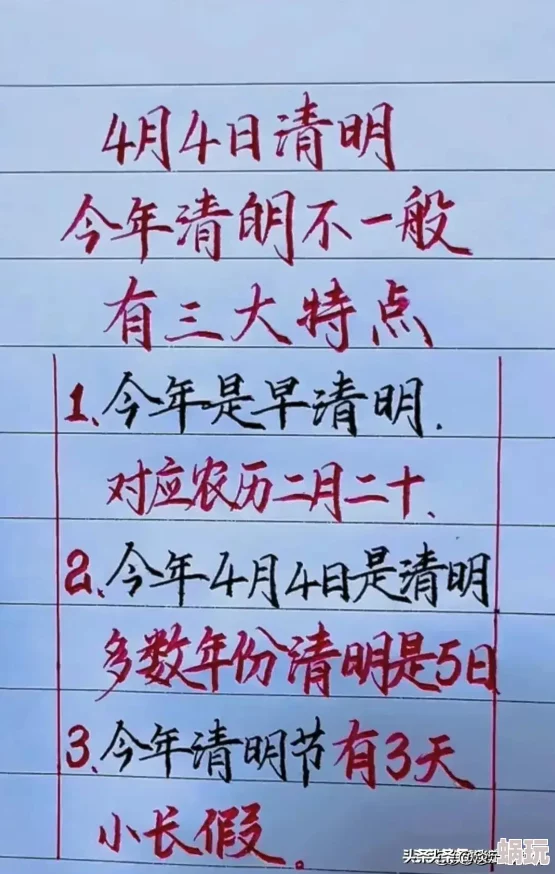 4月4日清明
今年清明不一般
有三大特点
1、今年是早清明.
对应农历二月二十、
2、今年4月4日是清明
多数年份清明是5日
3、今年清明节有3天
小长假。
蜗玩